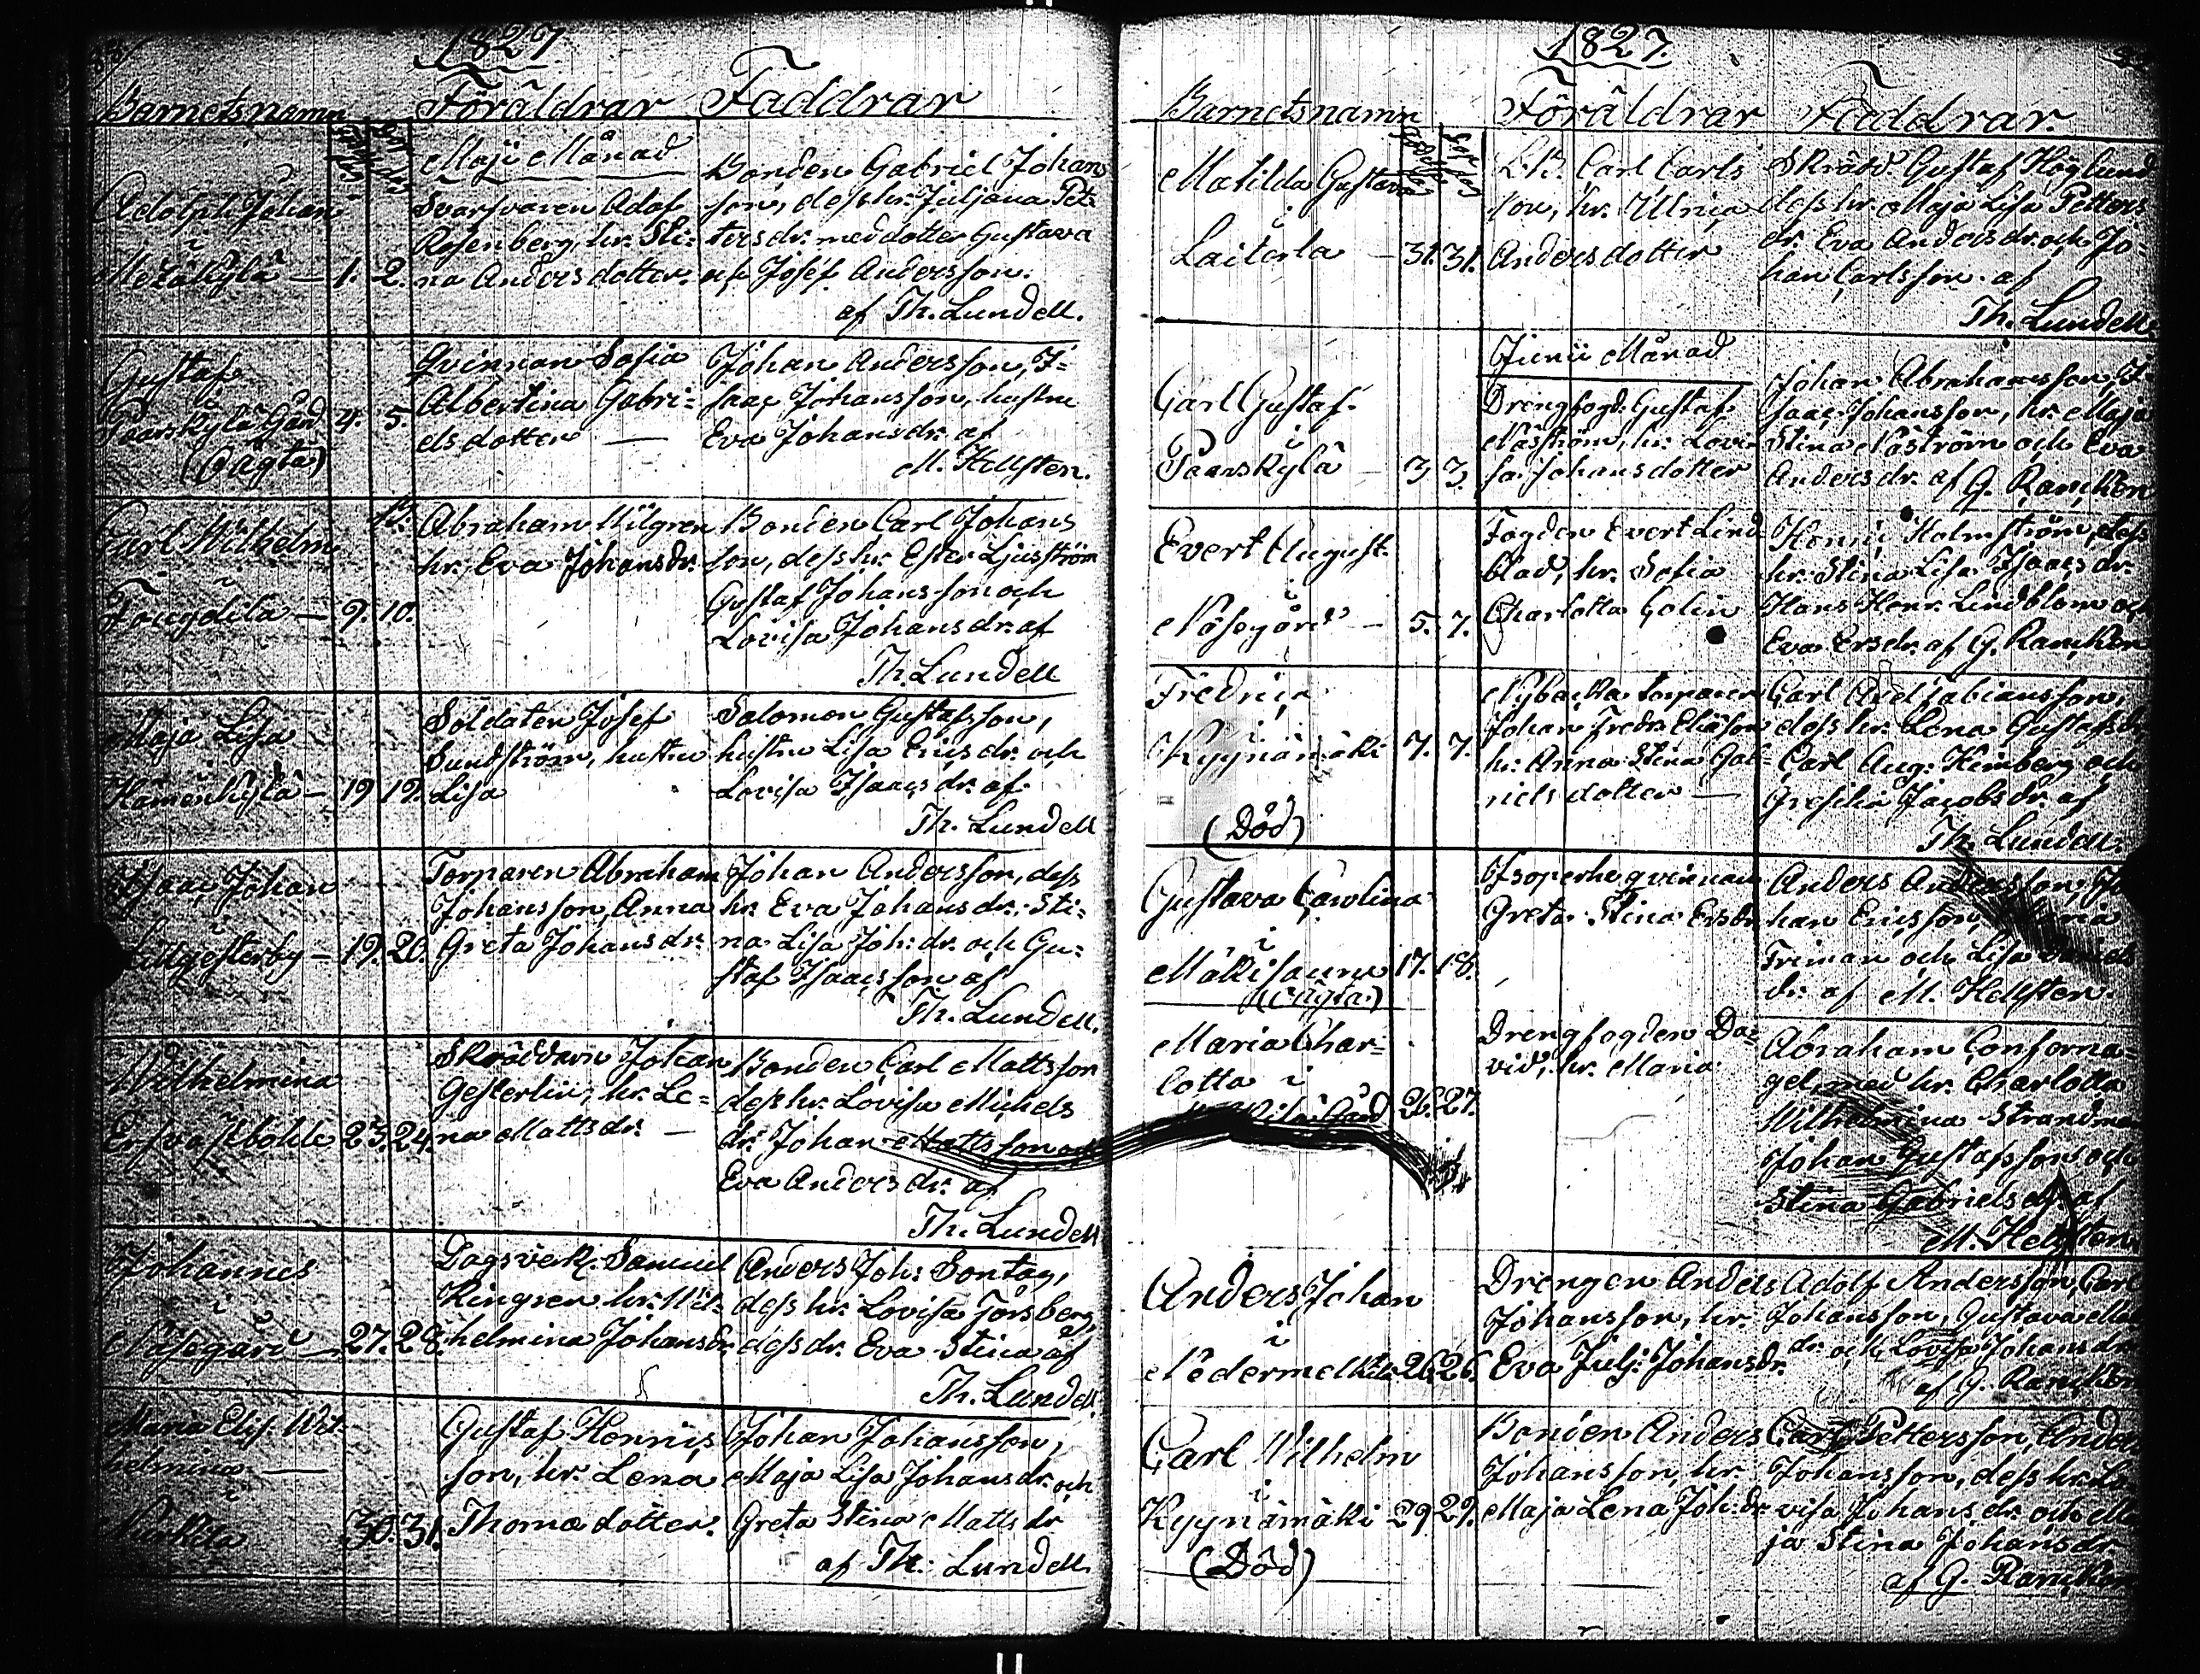 1827
Barnets namn
Föräldrar
Faddrar
Maji Månad
Adolph Johan
i
1. 2.
Svarfvaren Adolf
Rosenberg, hr. Sti-
na Andersdotter.
Bonden Gabriel Johans
son, dess hr. Juljana Pet-
tersdr. med dotter Gustava
och Josef Andersson.
af Th. Lundell.
Gustaf
i
Paarskylä Gård
(Oägta)
4. 5.
Qvinnan Sofia
Albertina Gabri-
elsdotter —
Johan Andersson, I-
saac Johansson, hustru
Eva Johansdr. af
M. Hellsten.
Carl Wilhelm
i
9. 10.
Abraham Wilgren
hr. Eva Johansdr.
Bonden Carl Johans
son, dess hr. Ester Ljusström
Gustaf Johansson och
Lovisa Johansdr. af
Th. Lundell
Maja Lisa
i
Hämenkylä — 19 19.
Soldaten Josef
Sundström, hustru
Lisa
Salomon Gustafsson,
hustru Lisa Ericsdr. och
Lovisa Isaacsdr. af
Th. Lundell
Isaac Johan
i
19. 20.
Torparen Abraham
Johansson, Anna
Greta Johansdr.
Johan Andersson, dess
hr. Eva Johansdr. Sti-
na Lisa Joh: dr. och Gu-
staf Isaacsson af
Th. Lundell.
Wilhelmina
i
23. 24.
Skräddarn Johan
Gesterlin, hr. Le-
na Mattsdr. —
Bonden Carl Mattsson
dess hr. Lovisa Michels
dr. Johan Mattsson och
Eva Andersdr. af
Th. Lundell
Johannes
i
Näsegård — 27. 28.
Dagsverk. Samuel
Ringren hr. Wil-
helmina Johansdr.
Anders Joh: Sontag,
dess hr. Lovisa Forsberg,
dess dr. Eva Stina af
Th. Lundell
Maria Elis. Wil-
helmina —
i
30. 31.
Gustaf
son, hr. Lena
Thomædotter.
Johan Johansson,
Maja Lisa Johansdr. och
Greta Stina Mattsdr.
af Th: Lundell.
1827.
Barnets namn
Föräldrar
Faddrar.
Matilda Gustava
i
Laiterla — 31. 31.
Carl Carls
son, hr. Ulrica
Andersdotter
Skrädd. Gustaf Höglund
dess hr. Maja Lisa Petters
dr. Eva Andersdr. och Jo-
han Carlsson. af
Th. Lundell.
Junii Månad
Carl Gustaf
i
Paarskylä — 3 3.
Drengfogd. Gustaf
Näsström, hr. Lovi-
sa Johansdotter
Johan Abrahamsson, I-
saac Johansson, hr. Maja
Stina Näström och Eva
Andersdr. af G. Rancken
Evert August
i
Näsegård — 5. 7.
Fogden Evert Lind
blad, hr. Sofia
Charlotta Colin
Holmström, dess
hr. Stina Lisa Isaacsdr.
Hans Henr. Lindblom och
Eva Ersdr. af G. Rancken
Fredric
i
Kyynämäki 7. 7.
(Död)
Nybacka torparen
Johan Fredr. Eliasson
hr. Anna Stina Gab-
rielsdotter —
Carl Axel Fabiansson,
dess hr. Lena Gustafsdr.
Carl Aug: Kimberg och
Jacobsdr. af
Th. Lundell.
Gustava Carolina
i
17. 18.
(Oägta)
qvinnan
Greta Stina Ersdr.
Anders Andersson, Jo
han Ericsson,
Friman och Lisa
dr. af M. Hellsten.
Maria Char-
lotta i
26. 27.
Drengfogden Da-
vid, hr. Maria
Abraham
gel, med hr. Charlotta
Wilhelmina Strandman
Johan Gustafsson och
Stina Gabrielsdr. af
M. Hellsten.
Anders Johan
i
26. 26.
Drengen Anders
Johansson, hr.
Eva Julj: Johansdr.
Adolf Andersson, Carl
Johansson, Gustava
dr. och Lovisa Johansdr.
af G. Rancken
Carl Wilhelm
i
Kyynämäki — 29 29.
(Död)
Bonden Anders
Johansson, hr.
Maja Lena Joh: dr.
Carl Pettersson, Anders
Johansson, dess hr. Lo-
visa Johansdr. och Ma
ja Stina Johansdr.
af G. Rancken